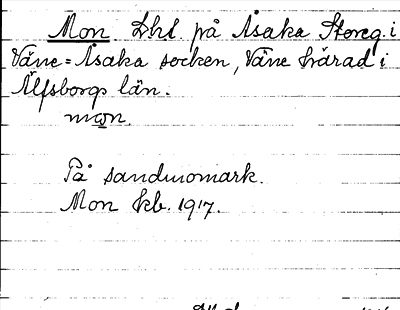 Mon. Lhl. på Åsaka Storeg. i
Väne=Åsaka socken, Väne härad i
Älfsborgs län.
mon.
På sandmomark.
Mon kb. 1917.